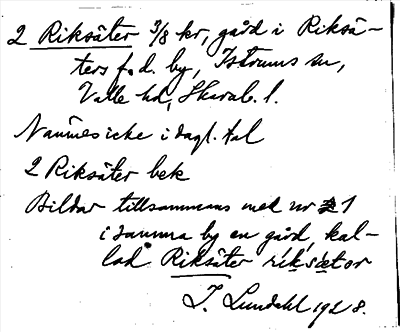 2 Riksäter 3/8 kr, gård i Riksä-
ters f.d. by, Istrums sn,
Valle hd, Skarab. l.
Nämnes icke i dagl. tal
2 Riksäter bek
Bildar tillsammans med nr 1
i samma by en gård, kal-
lad Riksäter ríksætor
J. Lundahl 1928.